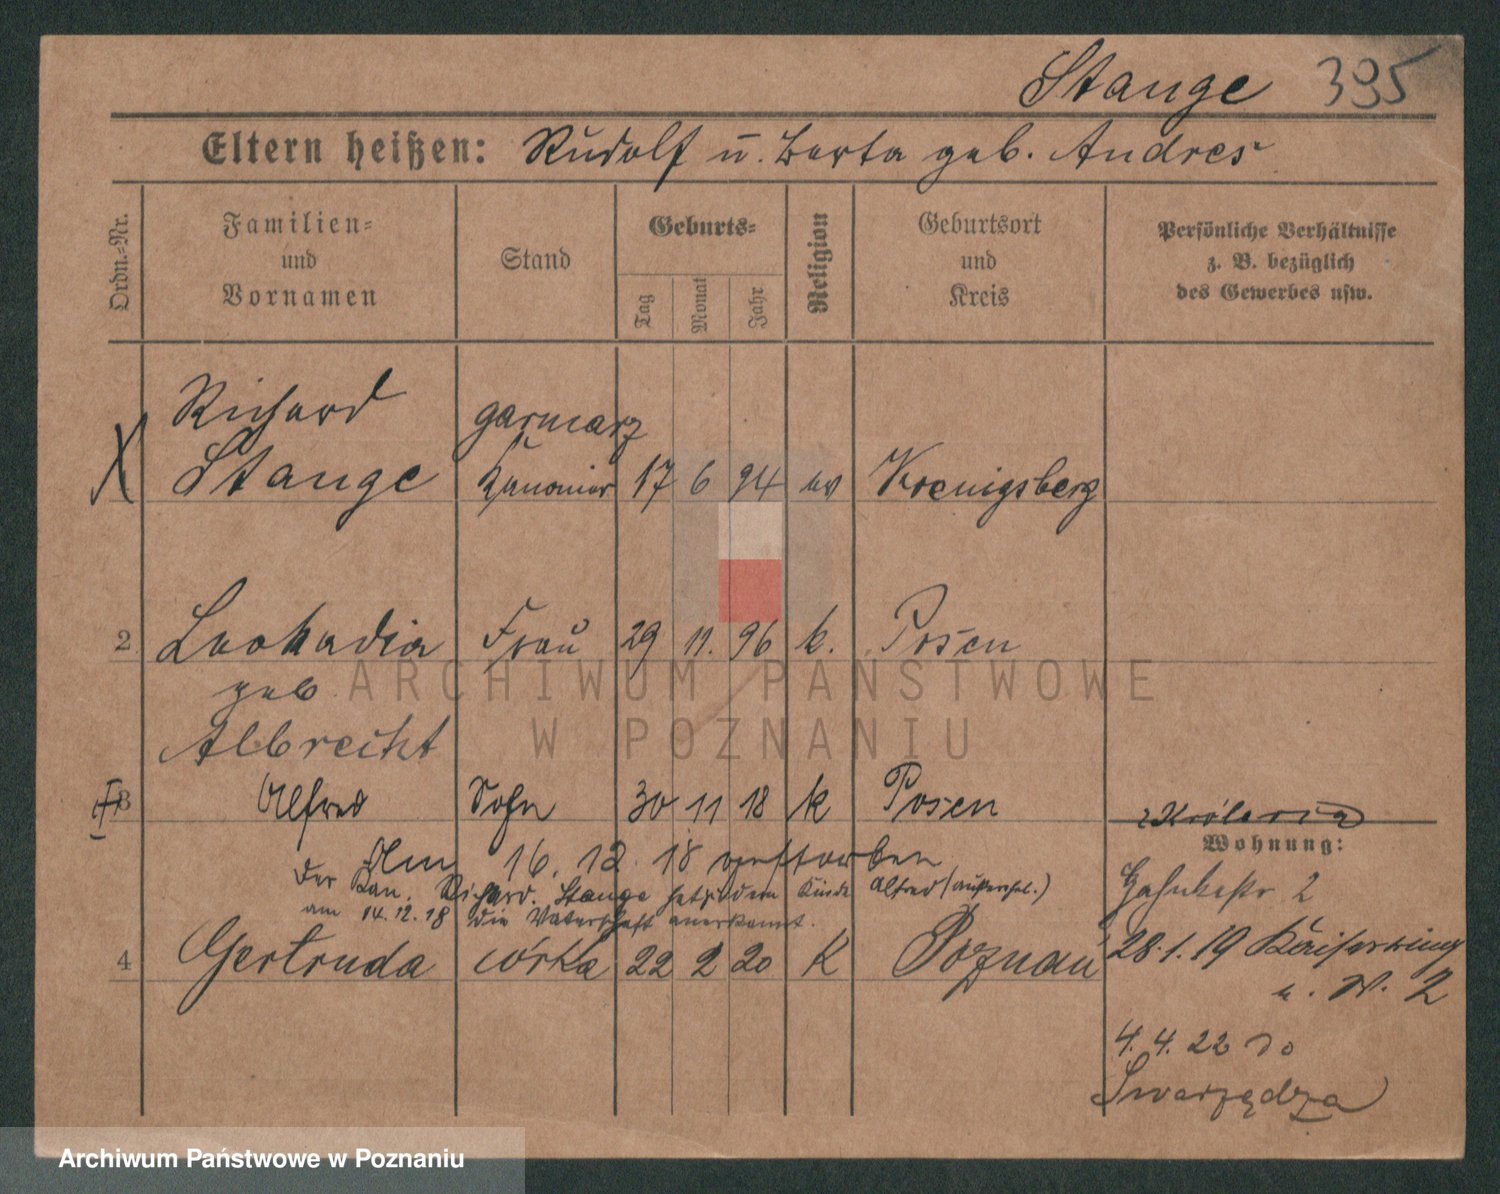 Stange 395
Eltern heißen: Rudolf u. Berta geb. Andres
Ordn.-Nr.
Familien-
und
Vornamen
Stand
Geburts-
Tag
Monat
Jahr
Religion
Geburtsort
und
Kreis
Persönliche Verhältnisse
z. B. bezüglich
des Gewerbes usw.
Richard garncarz
Stange Kanonier 17 6 94 ev Koenigsberg
2 Leokadia Frau 29 11. 96 k. Posen
geb
Albrecht
3 Alfred Sohn 30 11 18 k Posen
Wohnung:
Am 16. 12. 18 verstorben
Der Kan. Richard Stange hat zu dem Kinde Alfred (außerehel.)
am 14.12.18 die Vaterschaft anerkannt.
4 Gertruda córka 22 2 20 k Poznań
2
28.1.19 Kaiserring
2
4. 4. 22 do
Swarzędza
ARCHIWUM PAŃSTWOWE
W POZNANIU
Archiwum Państwowe w Poznaniu